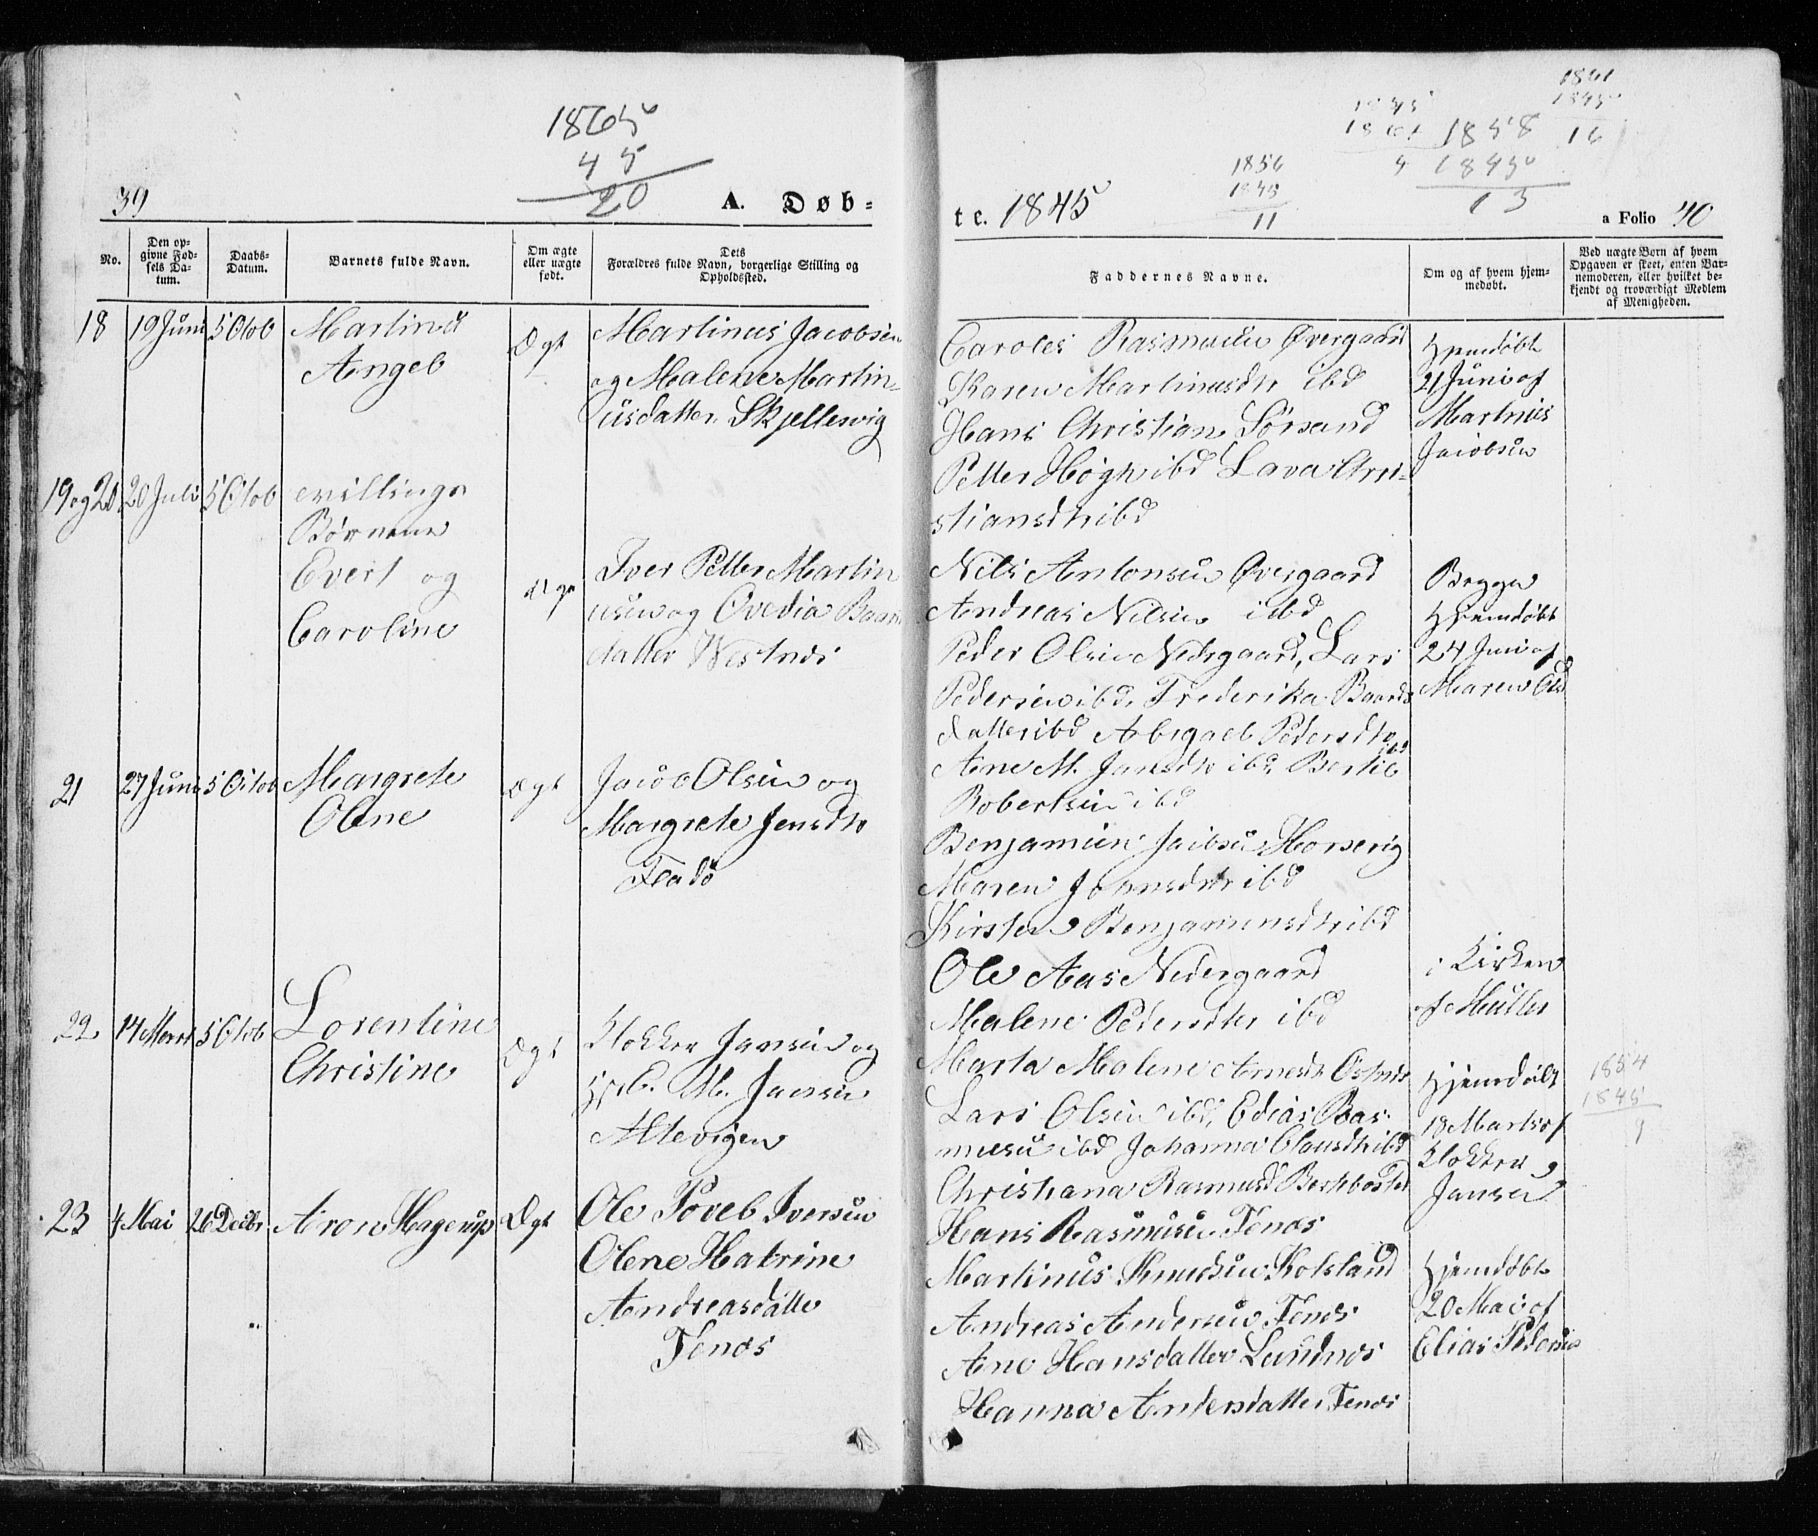 1865
45
20
39
A. Døb-
No.
Den op-
givne Fød-
sels Da-
tum.
Daabs-
Datum.
Barnets fulde Navn.
Om ægte
eller uægte
født.
Dets
Forældres fulde Navn, borgerlige Stilling og
Opholdssted.
18 19 Juni 5 Octob Martinus Ægt Martinus Jacobsen
Angel og Malene Martin-
usdatter Skjellevig
19 og 20 20 Juli 5 Octob Tvillinge
Børnene
Evert og Ægt Iver Petter Martin
Caroline usen og Ovedia Baar
datter Westnes
21 27 Juni 5 Octob Margrete Ægt Jacob Olsen og
Olene Margrete Jensdtr
Fladø
22 14 Marts 5 Octob Lorentine Ægt Klokker Jansen og
Christine M. Jansen
Altevigen
23 4 Mai 26 Decbr Aron Hagerup Ægt Ole Povel Iversen
Olene Katrine
Andreasdatter
Fenes
1861
1845
16
1845
1861
4
1858
1845
13
1856
1845
11
te. 1845
a Folio 40
Faddernes Navne.
Om og af hvem hjem-
medøbt.
Ved uægte Børn af hvem
Opgaven er skeet, enten Bar-
nemoderen, eller hvilket be-
kjendt og troværdigt Medlem
af Menigheden.
Caroles Rasmusen Øvergaard Hjemdøbt
Karen Martinusdtr ibd 21 Juni af
Hans Christian Sørsand Martinus
Petter Høgh ibd Lava Chri- Jacobsen
stiansdtr ibd
Nils Antonsen Øvergaard Begge
Andreas Nilsen ibd Hjemdøbt
Peder Olsen Nedrgaard, Lars 24 Juni af
Pedersen ibd, Frederika Baards Maren Ols
datter ibd Abigael Pedersdtr ibd
Ane M. Jansdtr ibd, Bertil
Robertsen ibd
Benjamin Jacobsen
Maren Johnsdtr ibd
Kirsten Benjaminsdtr ibd
Ole Aas Nedergaard i Kirken
Malene Pedersdtr ibd af Müller
Marta Malene Arnesdtr Hjemdøbt 1854
Lars Olsen ibd, Edias Ras- 18 Marts af 1845
musen ibd Johanna Clausdtr ibd Klokker 9
Christiana Rasmusd Jansen
Hans Rasmusen Fenes
Martinus Knudsen Kolsland Hjemdøbt
Andreas Andersen Fenes 20 Mai af
Ane Hansdatter Lundnes Elias Pedersen
Hanna Andersdatter Fenes